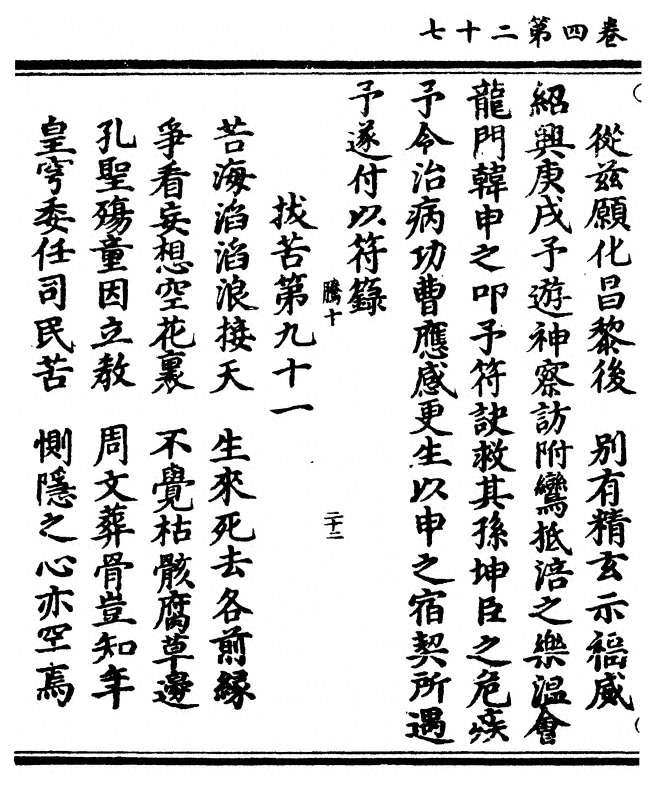 卷四第二十七
從茲願化昌黎後 別有精玄示福威
紹興庚戌予遊神察訪附鸞抵涪之樂溫會
龍門韓申之叩予符訣救其孫坤臣之危疾
予令治病功曹應感更生以申之宿契所遇
予遂付以符籙
騰十
二十二
拔苦第九十一
苦海滔滔浪接天 生來死去各前緣
爭看妄想空花裏 不覺枯骸腐草邊
孔聖殤童因立教 周文葬骨豈知年
皇穹委任司民苦 惻隱之心亦罕焉